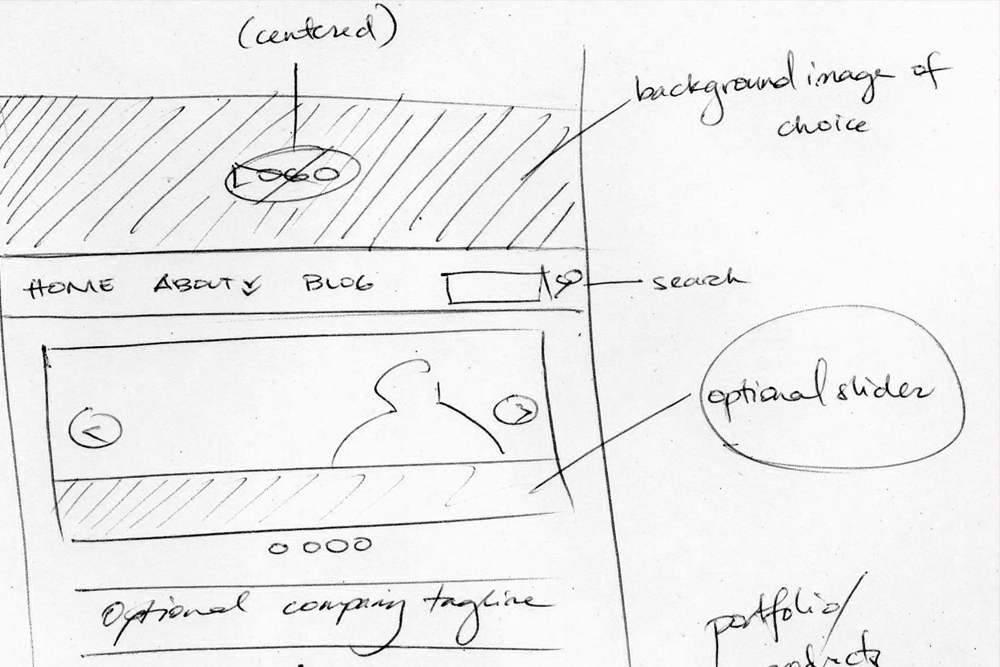 (centered)
background image of
choice
LOGO
HOME ABOUT BLOG
search
optional slider
Optional company tagline
portfolio/
products